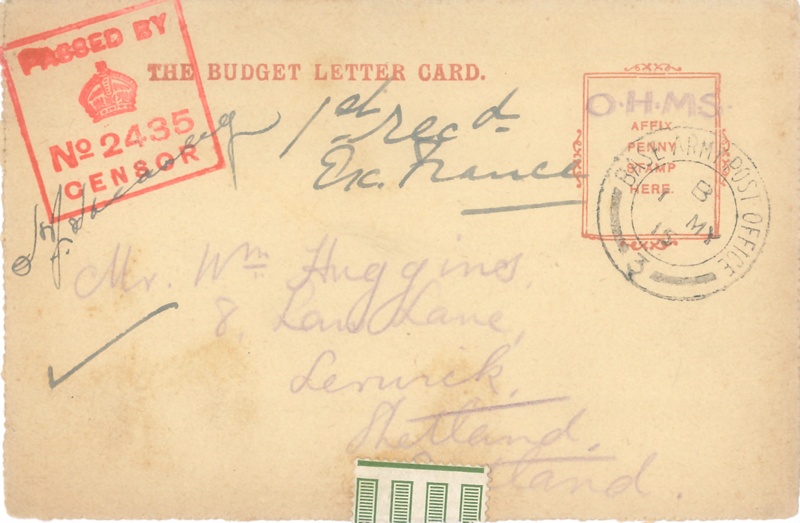 PASSED BY
Nº 2435
CENSOR
THE BUDGET LETTER CARD.
1st recd
Ex. France
O.H.M.S.
AFFIX
PENNY
STAMP
HERE.
BASE ARMY POST OFFICE
B
MY
15
3
Mr. Wm Huggins,
8, Law Lane,
Lerwick,
Shetland,